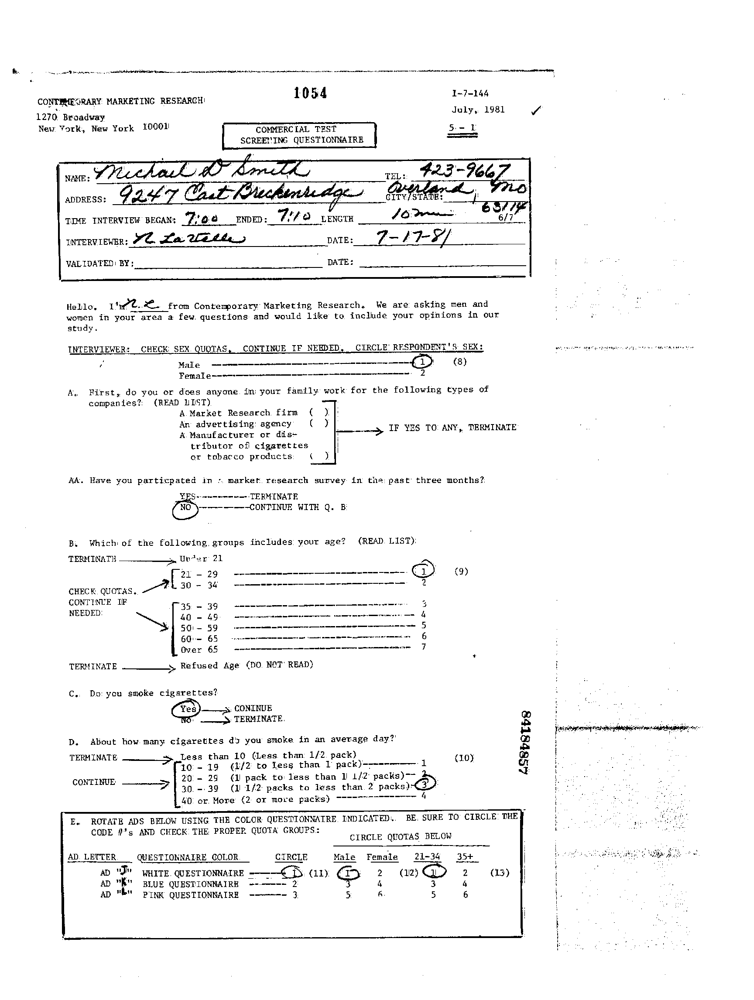 1054
I-7-144
CONTEMPORARY MARKETING RESEARCH
July, 1981 ✓
1270 Broadway
New York, New York 10001
5 - 1
COMMERCIAL TEST
SCREENING QUESTIONNAIRE
NAME: Michael D Smith TEL: 423-9667
ADDRESS: 9247 East Breckenridge CITY/STATE: Overland Mo
63114
TIME INTERVIEW BEGAN: 7:00 ENDED: 7:10 LENGTH 10 min 6/7
INTERVIEWER: N. DATE: 7-17-81
VALIDATED BY: DATE:
Hello. I'm from Contemporary Marketing Research. We are asking men and
women in your area a few questions and would like to include your opinions in our
study.
INTERVIEWER: CHECK SEX QUOTAS, CONTINUE IF NEEDED. CIRCLE RESPONDENT'S SEX:
Male 1 (8)
Female 2
A. First, do you or does anyone in your family work for the following types of
companies? (READ LIST)
A Market Research firm ( )
An advertising agency ( )
A Manufacturer or dis-
tributor of cigarettes
or tobacco products ( )
IF YES TO ANY, TERMINATE
AA. Have you particpated in a market research survey in the past three months?
YES---------TERMINATE
NO---------CONTINUE WITH Q. B
B. Which of the following groups includes your age? (READ LIST)
TERMINATE Under 21
21 - 29 1 (9)
30 - 34 2
CHECK QUOTAS.
CONTINUE IF
NEEDED:
35 - 39 3
40 - 49 4
50 - 59 5
60 - 65 6
Over 65 7
TERMINATE Refused Age (DO NOT READ)
C. Do you smoke cigarettes?
Yes CONINUE
No TERMINATE
D. About how many cigarettes do you smoke in an average day?
TERMINATE Less than 10 (Less than 1/2 pack)
10 - 19 (1/2 to less than 1 pack) 1 (10)
CONTINUE 20 - 29 (1 pack to less than 1 1/2 packs) 2
30 - 39 (1 1/2 packs to less than 2 packs) 3
40 or More (2 or more packs) 4
84184857
E. ROTATE ADS BELOW USING THE COLOR QUESTIONNAIRE INDICATED. BE SURE TO CIRCLE THE
CODE #'s AND CHECK THE PROPER QUOTA GROUPS:
CIRCLE QUOTAS BELOW
AD LETTER QUESTIONNAIRE COLOR CIRCLE Male Female 21-34 35+
AD "J" WHITE QUESTIONNAIRE 1 (11) 1 2 (12) 1 2 (13)
AD "K" BLUE QUESTIONNAIRE 2 3 4 3 4
AD "L" PINK QUESTIONNAIRE 3 5 6 5 6